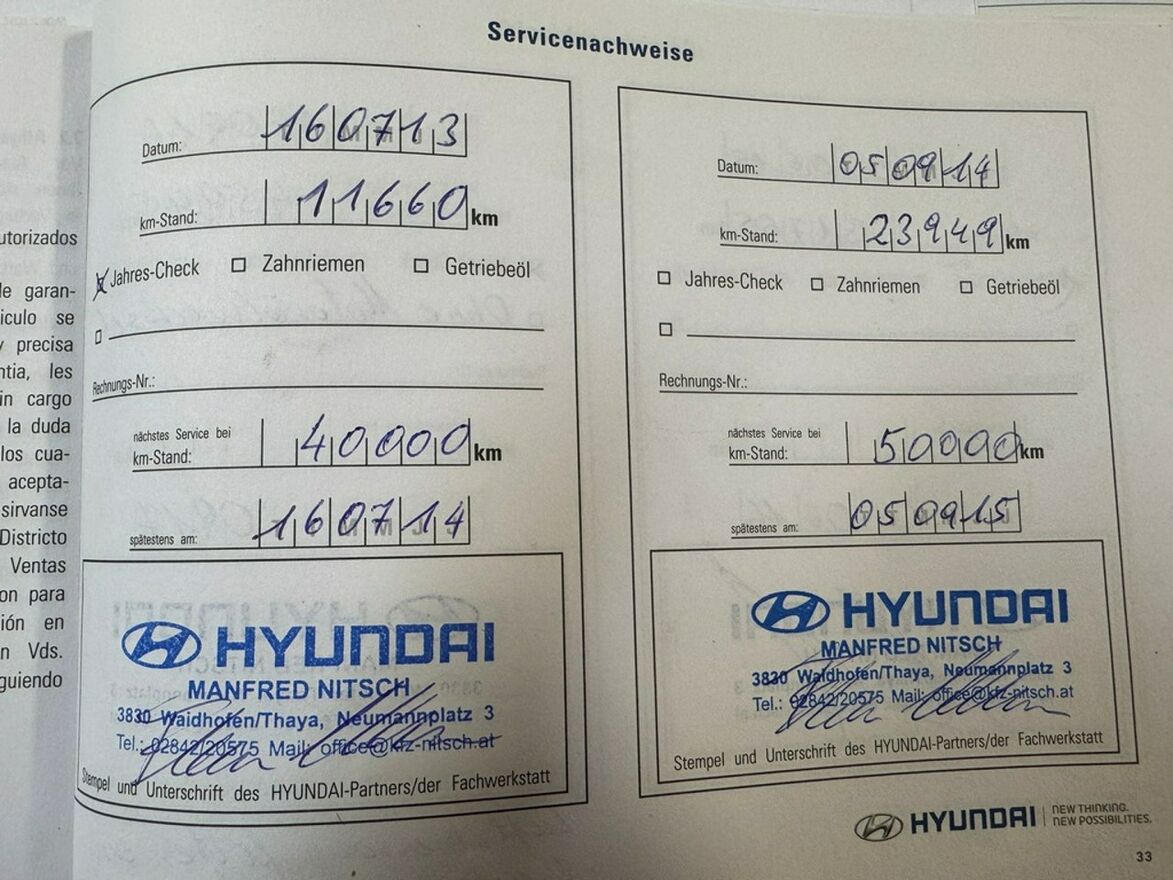 Servicenachweise
Datum: 160713
km-Stand: 11660 km
Jahres-Check Zahnriemen Getriebeöl
Rechnungs-Nr.:
nächstes Service bei
km-Stand: 40000 km
spätestens am: 160714
HYUNDAI
MANFRED NITSCH
3830 Waidhofen/Thaya, Neumannplatz 3
Tel.: 02842/20575 Mail: office@kfz-nitsch.at
Stempel und Unterschrift des HYUNDAI-Partners/der Fachwerkstatt
Datum: 050914
km-Stand: 23949 km
Jahres-Check Zahnriemen Getriebeöl
Rechnungs-Nr.:
nächstes Service bei
km-Stand: 50000 km
spätestens am: 050915
HYUNDAI
MANFRED NITSCH
3830 Waidhofen/Thaya, Neumannplatz 3
Tel.: 02842/20575 Mail: office@kfz-nitsch.at
Stempel und Unterschrift des HYUNDAI-Partners/der Fachwerkstatt
HYUNDAI
NEW THINKING.
NEW POSSIBILITIES.
33
utorizados
de garan-
ículo se
y precisa
ntia, les
in cargo
la duda
los cua-
acepta-
sirvanse
Districto
Ventas
on para
ión en
n Vds.
guiendo